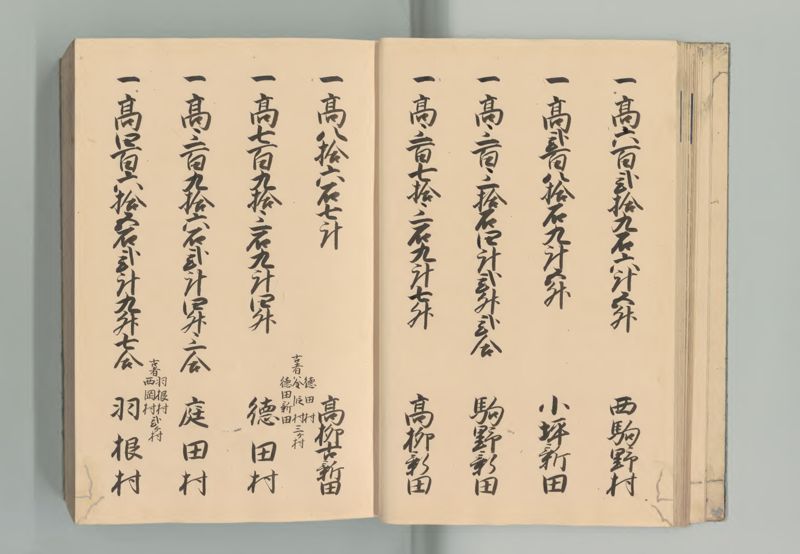 一 高六百弐拾九石六斗五升 西駒野村
一 高弐百八拾石九斗五升 小坪新田
一 高三百三拾石四斗弐升弐合 駒野新田
一 高三百七拾三石九斗七升 高柳新田
一 高八拾六石七斗 高柳古新田
一 高七百九拾三石九斗四升
古者
徳田村
村三ヶ村
徳田新田
徳田村
一 高三百九拾六石弐斗四升三合 庭田村
一 高四百六拾五石弐斗九升七合
古者
羽根村
西岡村
弐ヶ村
羽根村